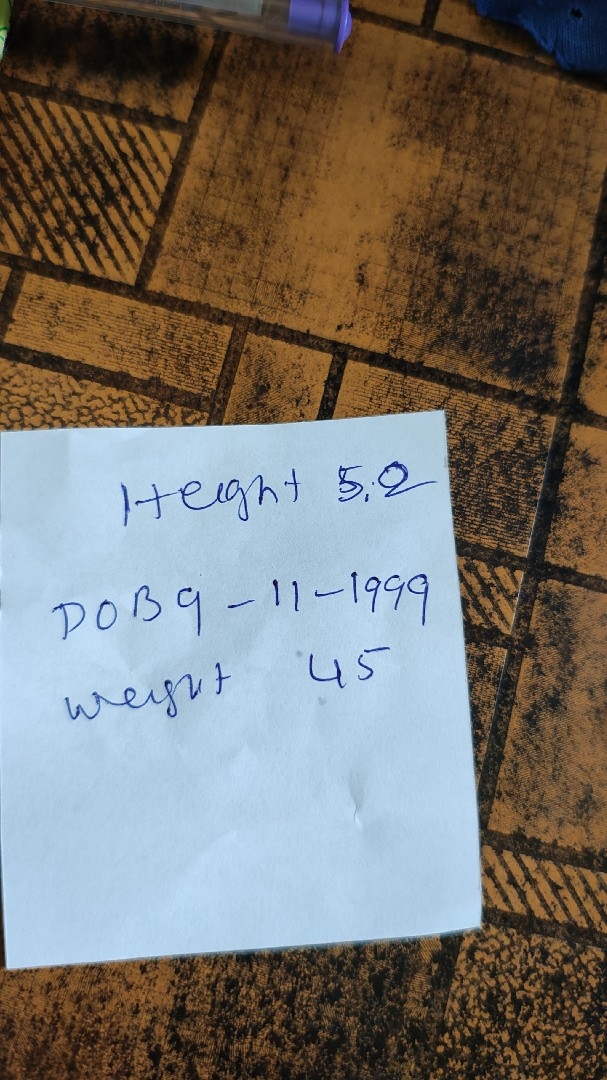 Height 5.2
DOB 9-11-1999
weight 45